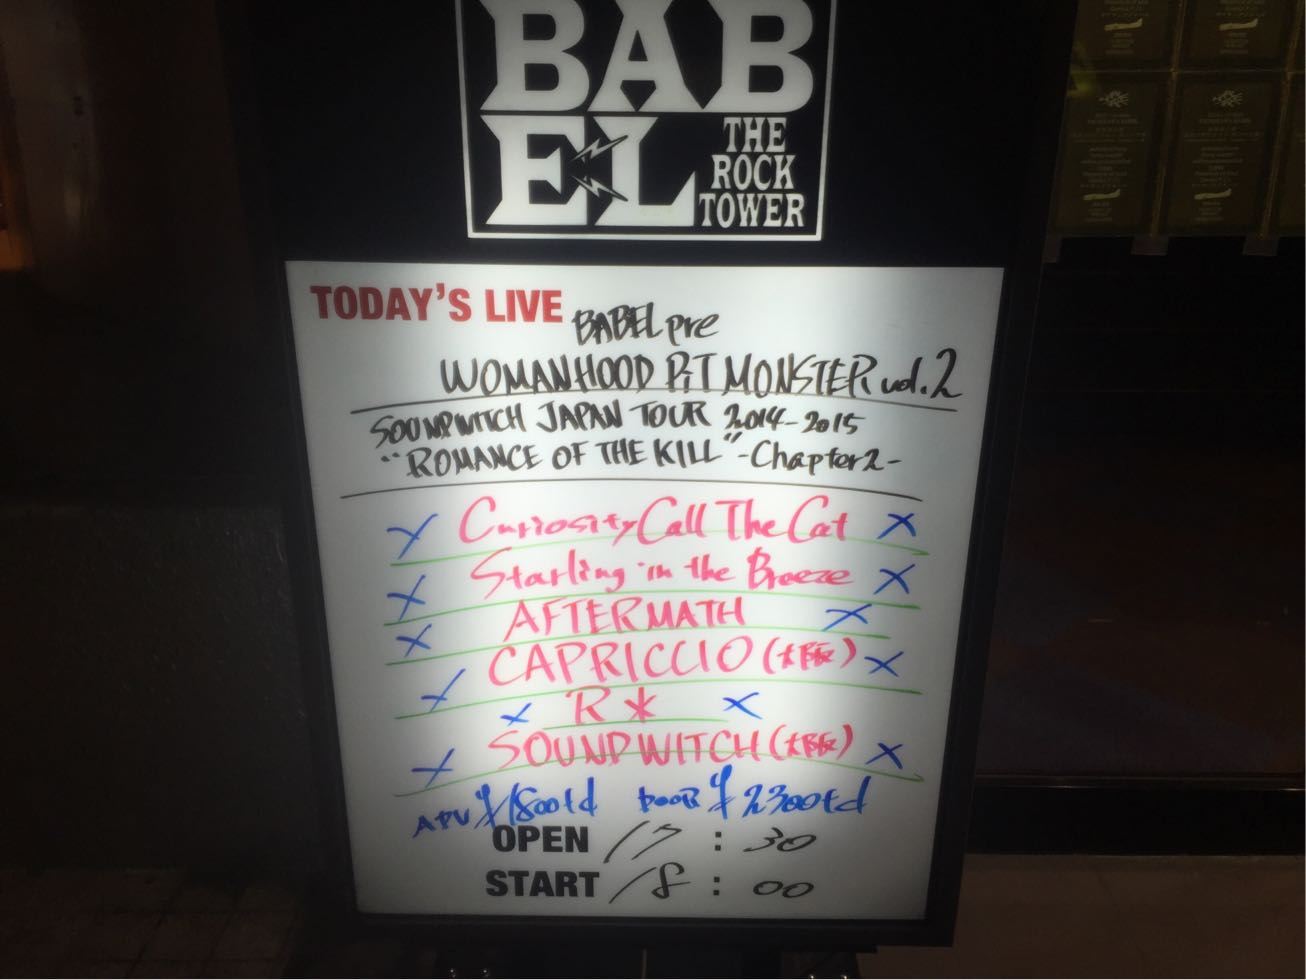 BAB
EL THE
ROCK
TOWER
TODAY'S LIVE BABEL pre
WOMANHOOD PiT MONSTER vol.2
SOUNDWITCH JAPAN TOUR 2014-2015
"ROMANCE OF THE KILL" -Chapter2-
× Curiosity Call The Cat ×
× Starling in the Breeze ×
× AFTERMATH ×
× CAPRICCIO (大阪) ×
× R* ×
× SOUNDWITCH (大阪) ×
ADV ¥1800td DOOR ¥2300td
OPEN 17:30
START 18:00